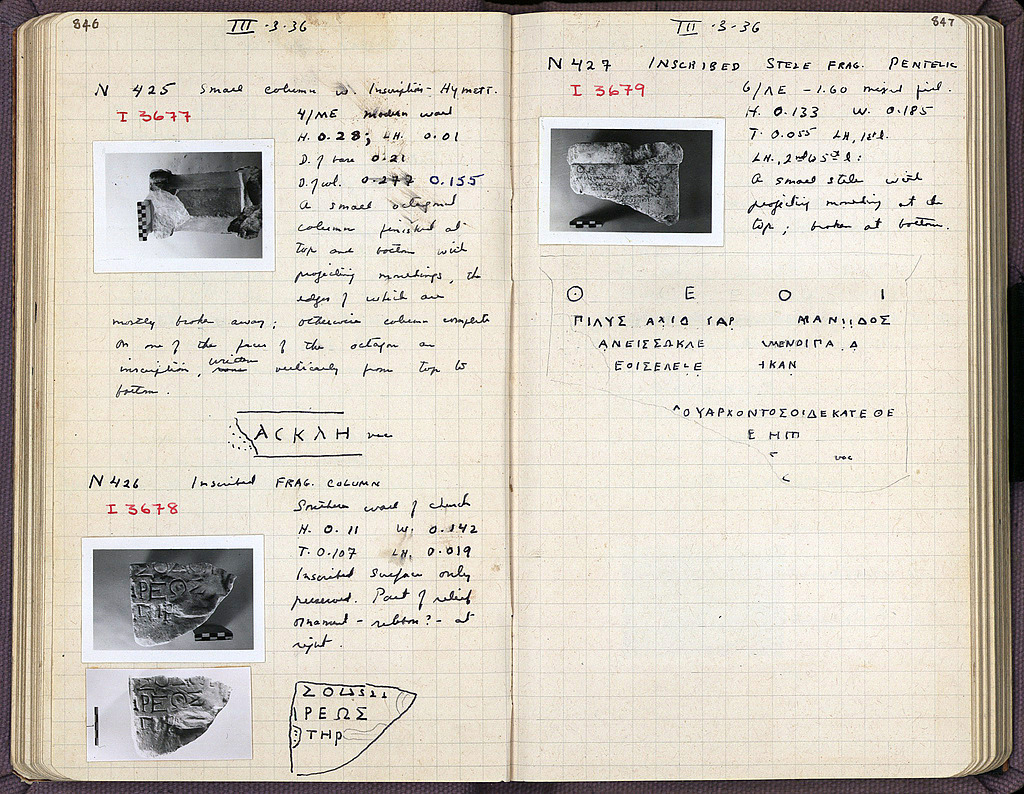 846
III · 3 · 36
N 425 Small column w. Inscription - Hymett.
I 3677
4/ΜΕ modern wall
H. 0.28; LH. 0.01
D. of base 0.21
D. of col. 0.277 0.155
A small octagonal
column finished at
top and bottom with
projecting mouldings, the
edges of which are
mostly broken away; otherwise column complete
On one of the faces of the octagon an
inscription, written vertically from top to
bottom.
ΑϹΚΛΗ vac
N 426 Inscribed FRAG. COLUMN
I 3678
Southern wall of church
H. 0.11 W. 0.142
T. 0.107 LH. 0.019
Inscribed surface only
preserved. Part of relief
ornament - ribbon? - at
right.
ΡΕΩΣ
ΤΗΡ
847
III · 3 · 36
N 427 INSCRIBED STELE FRAG. PENTELIC
I 3679
6/ΛΕ - 1.60 mixed fill.
H. 0.133 W. 0.185
T. 0.055 LH, 1st l.
LH., 2nd 65th l:
A small stele with
projecting moulding at the
top; broken at bottom.
Θ Ε Ο Ι
ΠΙΛΥΣ ΑΧΙΟ ΓΑΡ ΜΑΝΙΙΔΟΣ
ΑΝΕΙΣΣΩΚΛΕ ΜΕΝΟΙΠΑ Δ
ΕΟΙΣΕΛΕΣΕ ΙΚΑΝ
ΟΥΑΡΧΟΝΤΟΣΟΙΔΕΚΑΤΕΘΕ
Ε ΗΠΙ
vac